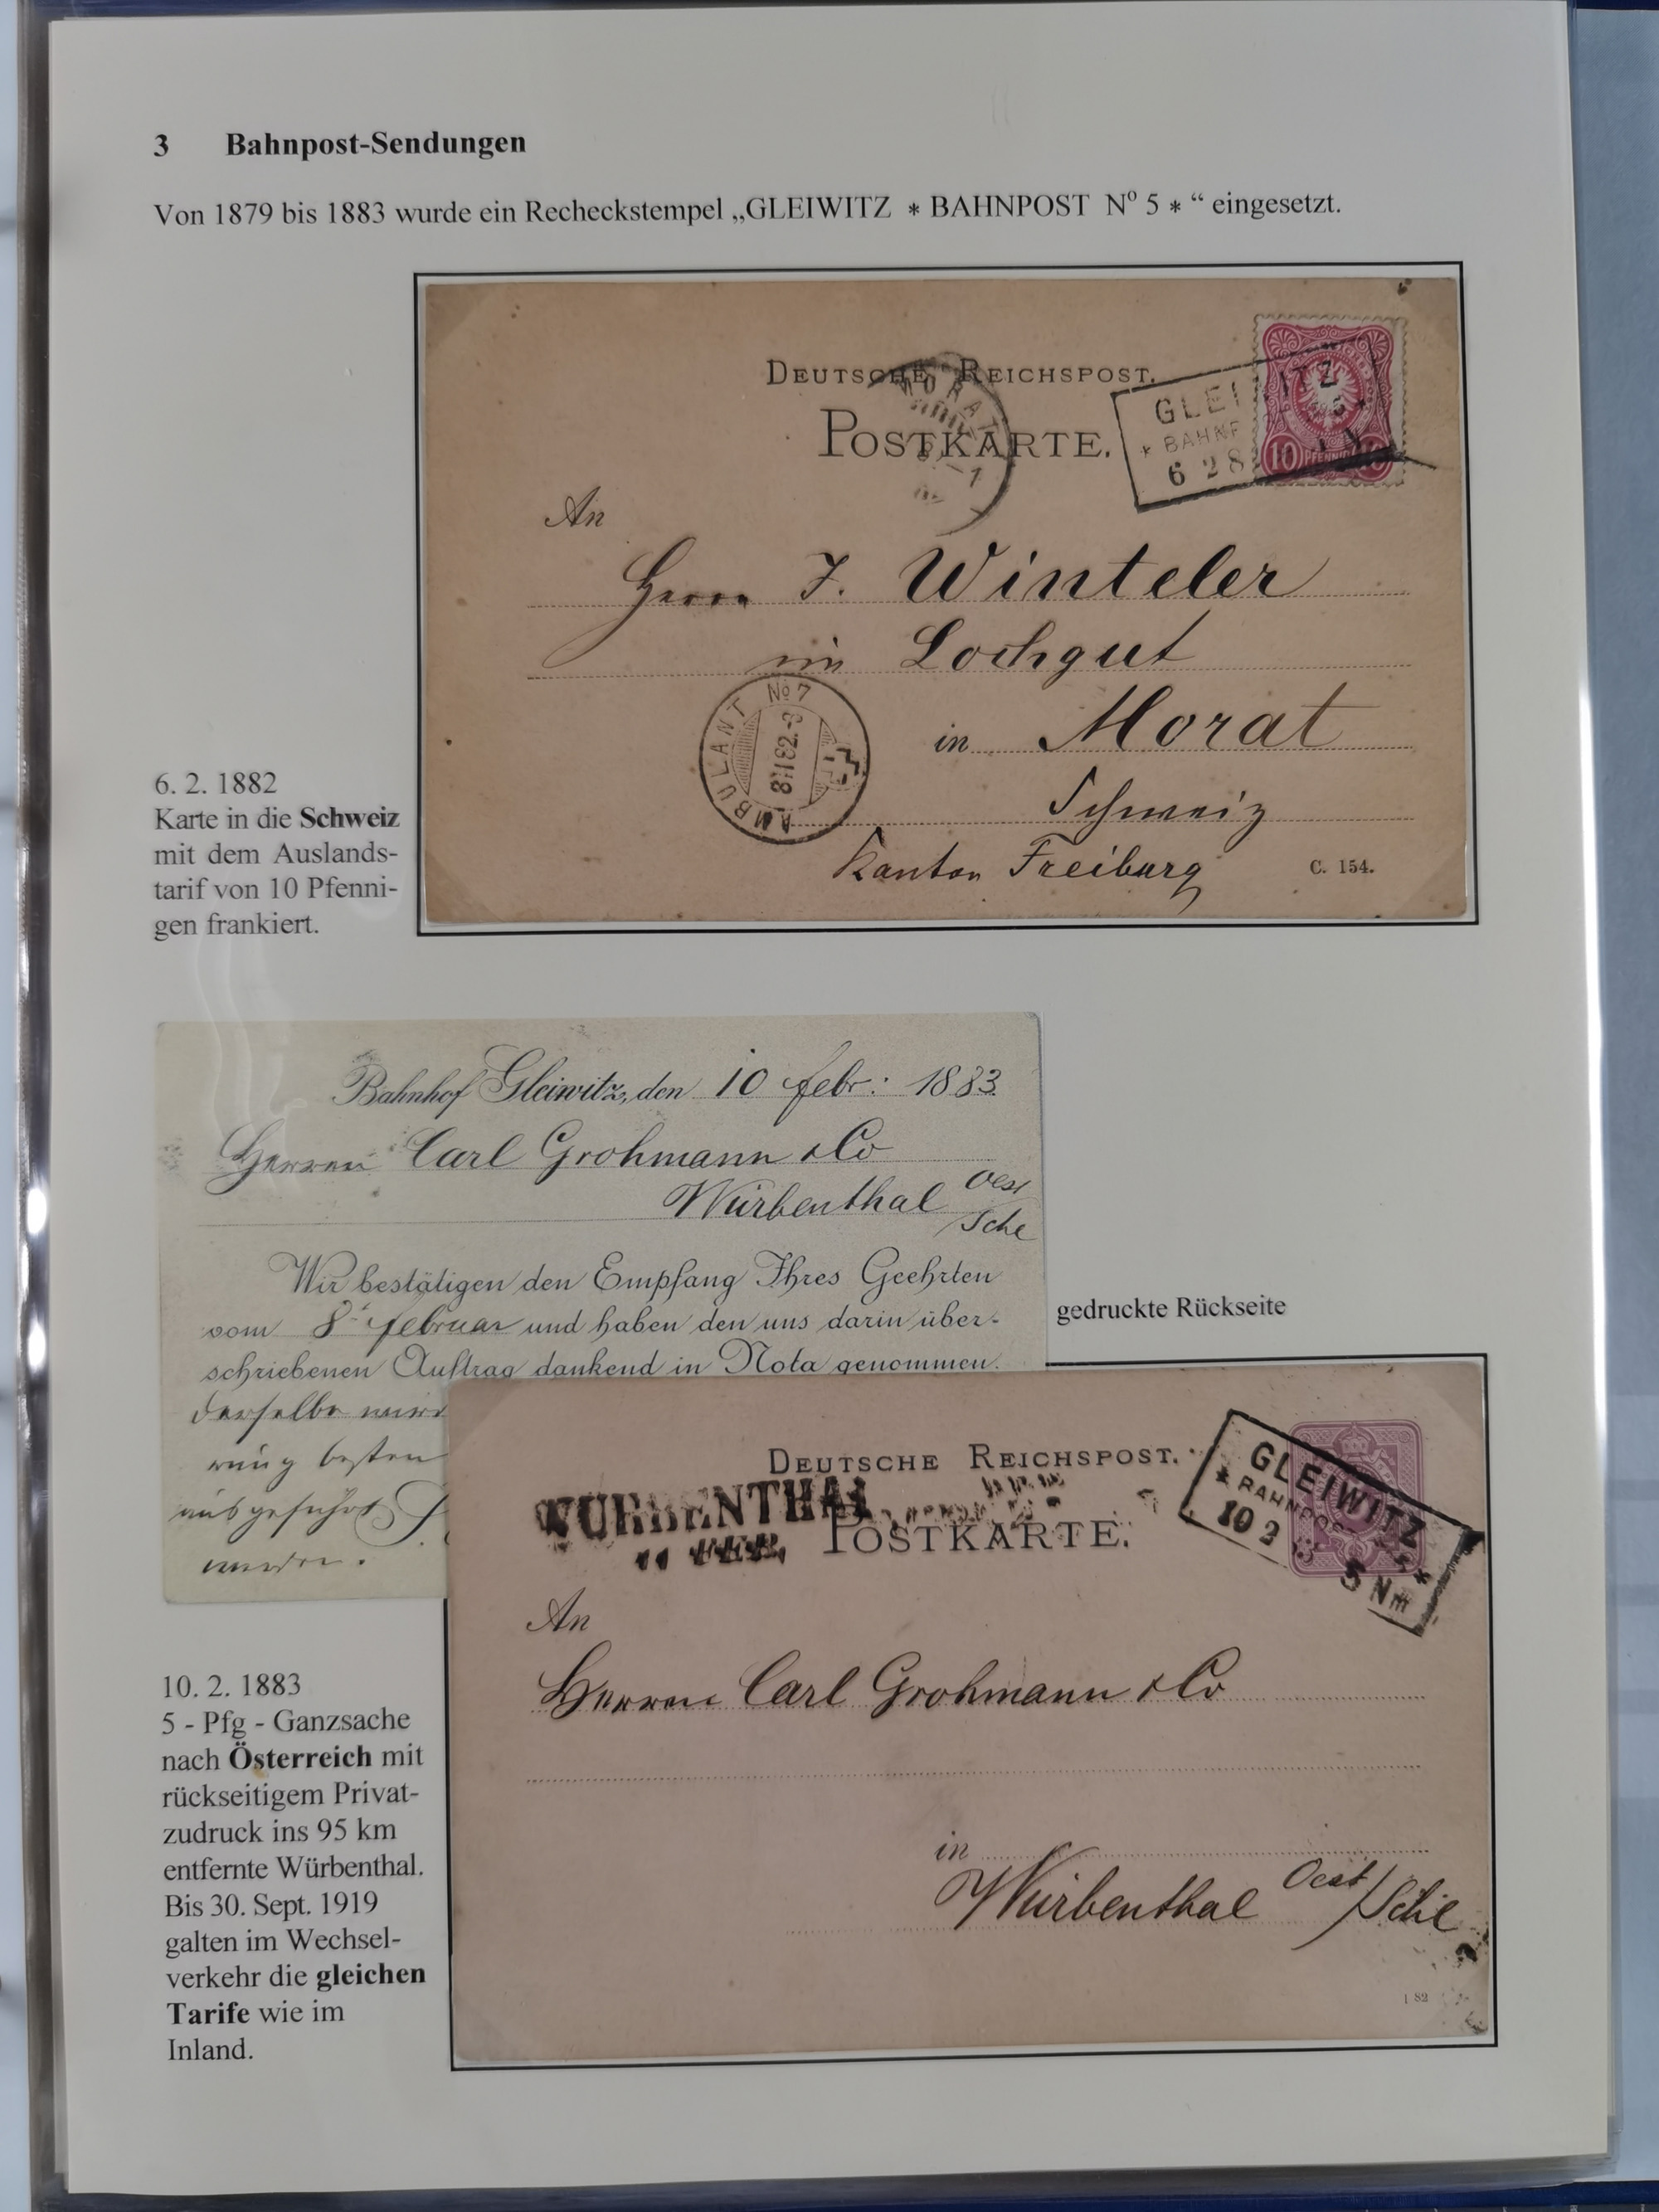 3 Bahnpost-Sendungen
Von 1879 bis 1883 wurde ein Recheckstempel „GLEIWITZ * BAHNPOST Nº 5 * “ eingesetzt.
DEUTSCHE REICHSPOST.
POSTKARTE.
GLEIWITZ
* BAHNP
6 2 8
10 PFENNIG
An
Herrn J. Winteler
im Lochgut
in Morat
Schweiz
Kanton Freiburg
C. 154.
AMBULANT No 7
8 II 82.-3
6. 2. 1882
Karte in die Schweiz
mit dem Auslands-
tarif von 10 Pfenni-
gen frankiert.
Bahnhof Gleiwitz, den 10 Febr: 1883
Herren Carl Grohmann & Co
Würbenthal Oest
Sche
Wir bestätigen den Empfang Ihres Geehrten
vom 8t Februar und haben den uns darin über-
schriebenen Auftrag dankend in Nota genommen.
derselbe wird
besten
ausgeführt
werden.
gedruckte Rückseite
DEUTSCHE REICHSPOST.
POSTKARTE.
WÜRBENTHAL
11 FEB.
GLEIWITZ
* BAHNPOST 5 *
10 2 83 5 Nm
An
Herren Carl Grohmann & Co
in
Würbenthal Oest/Sche
1 82
10. 2. 1883
5 - Pfg - Ganzsache
nach Österreich mit
rückseitigem Privat-
zudruck ins 95 km
entfernte Würbenthal.
Bis 30. Sept. 1919
galten im Wechsel-
verkehr die gleichen
Tarife wie im
Inland.